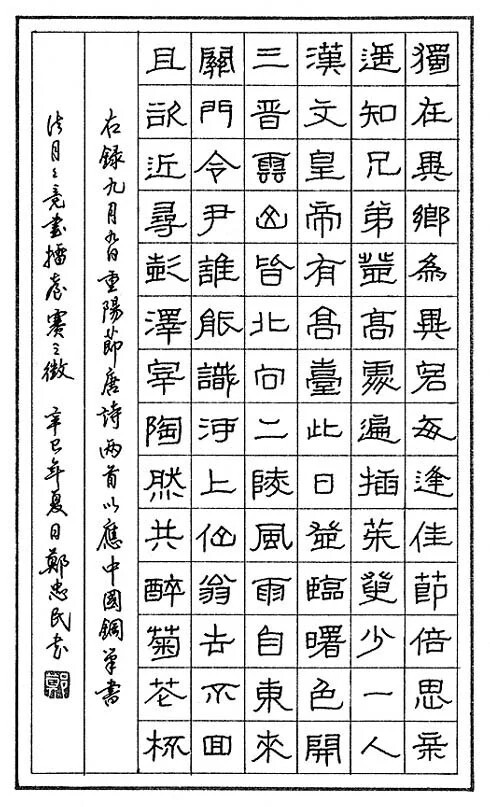 獨在異鄉為異客每逢佳節倍思亲
遥知兄弟登高處遍插茱萸少一人
漢文皇帝有高臺此日登臨曙色開
三晉雲山皆北向二陵風雨自東來
關門令尹誰能識河上仙翁去不回
且欲近尋彭澤宰陶然共醉菊花杯
右録九月九日重陽節唐詩两首以應中國鋼筆書
法月〻竞書擂臺賽之徵 辛巳年夏日鄭忠民書
鄭